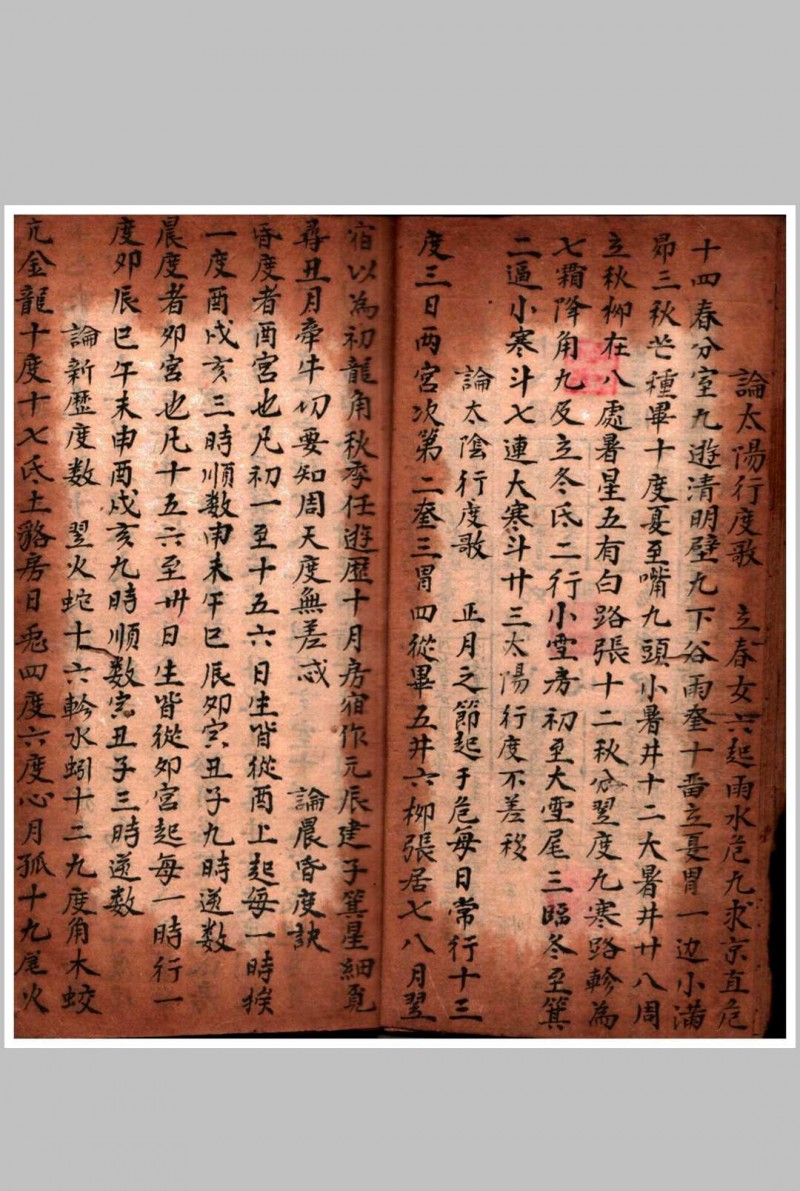 論太陽行度歌　立春女六起雨水危九求京直危
十四春分室九遊清明壁九下谷雨奎十畨立夏胃一边小滿
昴三秋芒種畢十度夏至嘴九頭小暑井十二大暑井廿八周
立秋柳在八處暑星五有白路張十二秋分翌度九寒路軫為
七霜降角九及立冬氐二行小雪房初至大雪尾三臨冬至箕
二逼小寒斗七連大寒斗廿三太陽行度不差移
論太陰行度歌　正月之節起于危每日常行十三
度三日两宮次第二奎三胃四從畢五井六柳張居七八月翌
宿以為初龍角秋季任遊歷十月房宿作元辰建子箕星細覓
尋丑月牽牛切要知周天度無差忒　論晨昏度訣
昏度者酉宮也凡初一至十五六日生皆從酉上起每一時挨
一度酉戌亥三時順数申未午巳辰卯寅丑子九時逆数
晨度者卯宮也凡十五六至卅日生皆從卯宮起每一時行一
度卯辰巳午未申酉戌亥九時順数寅丑子三時逆数
論新歷度数　翌火蛇十六軫水蚓十二九度角木蛟
亢金龍十度十七氐土貉房日兎四度六度心月狐十九尾火